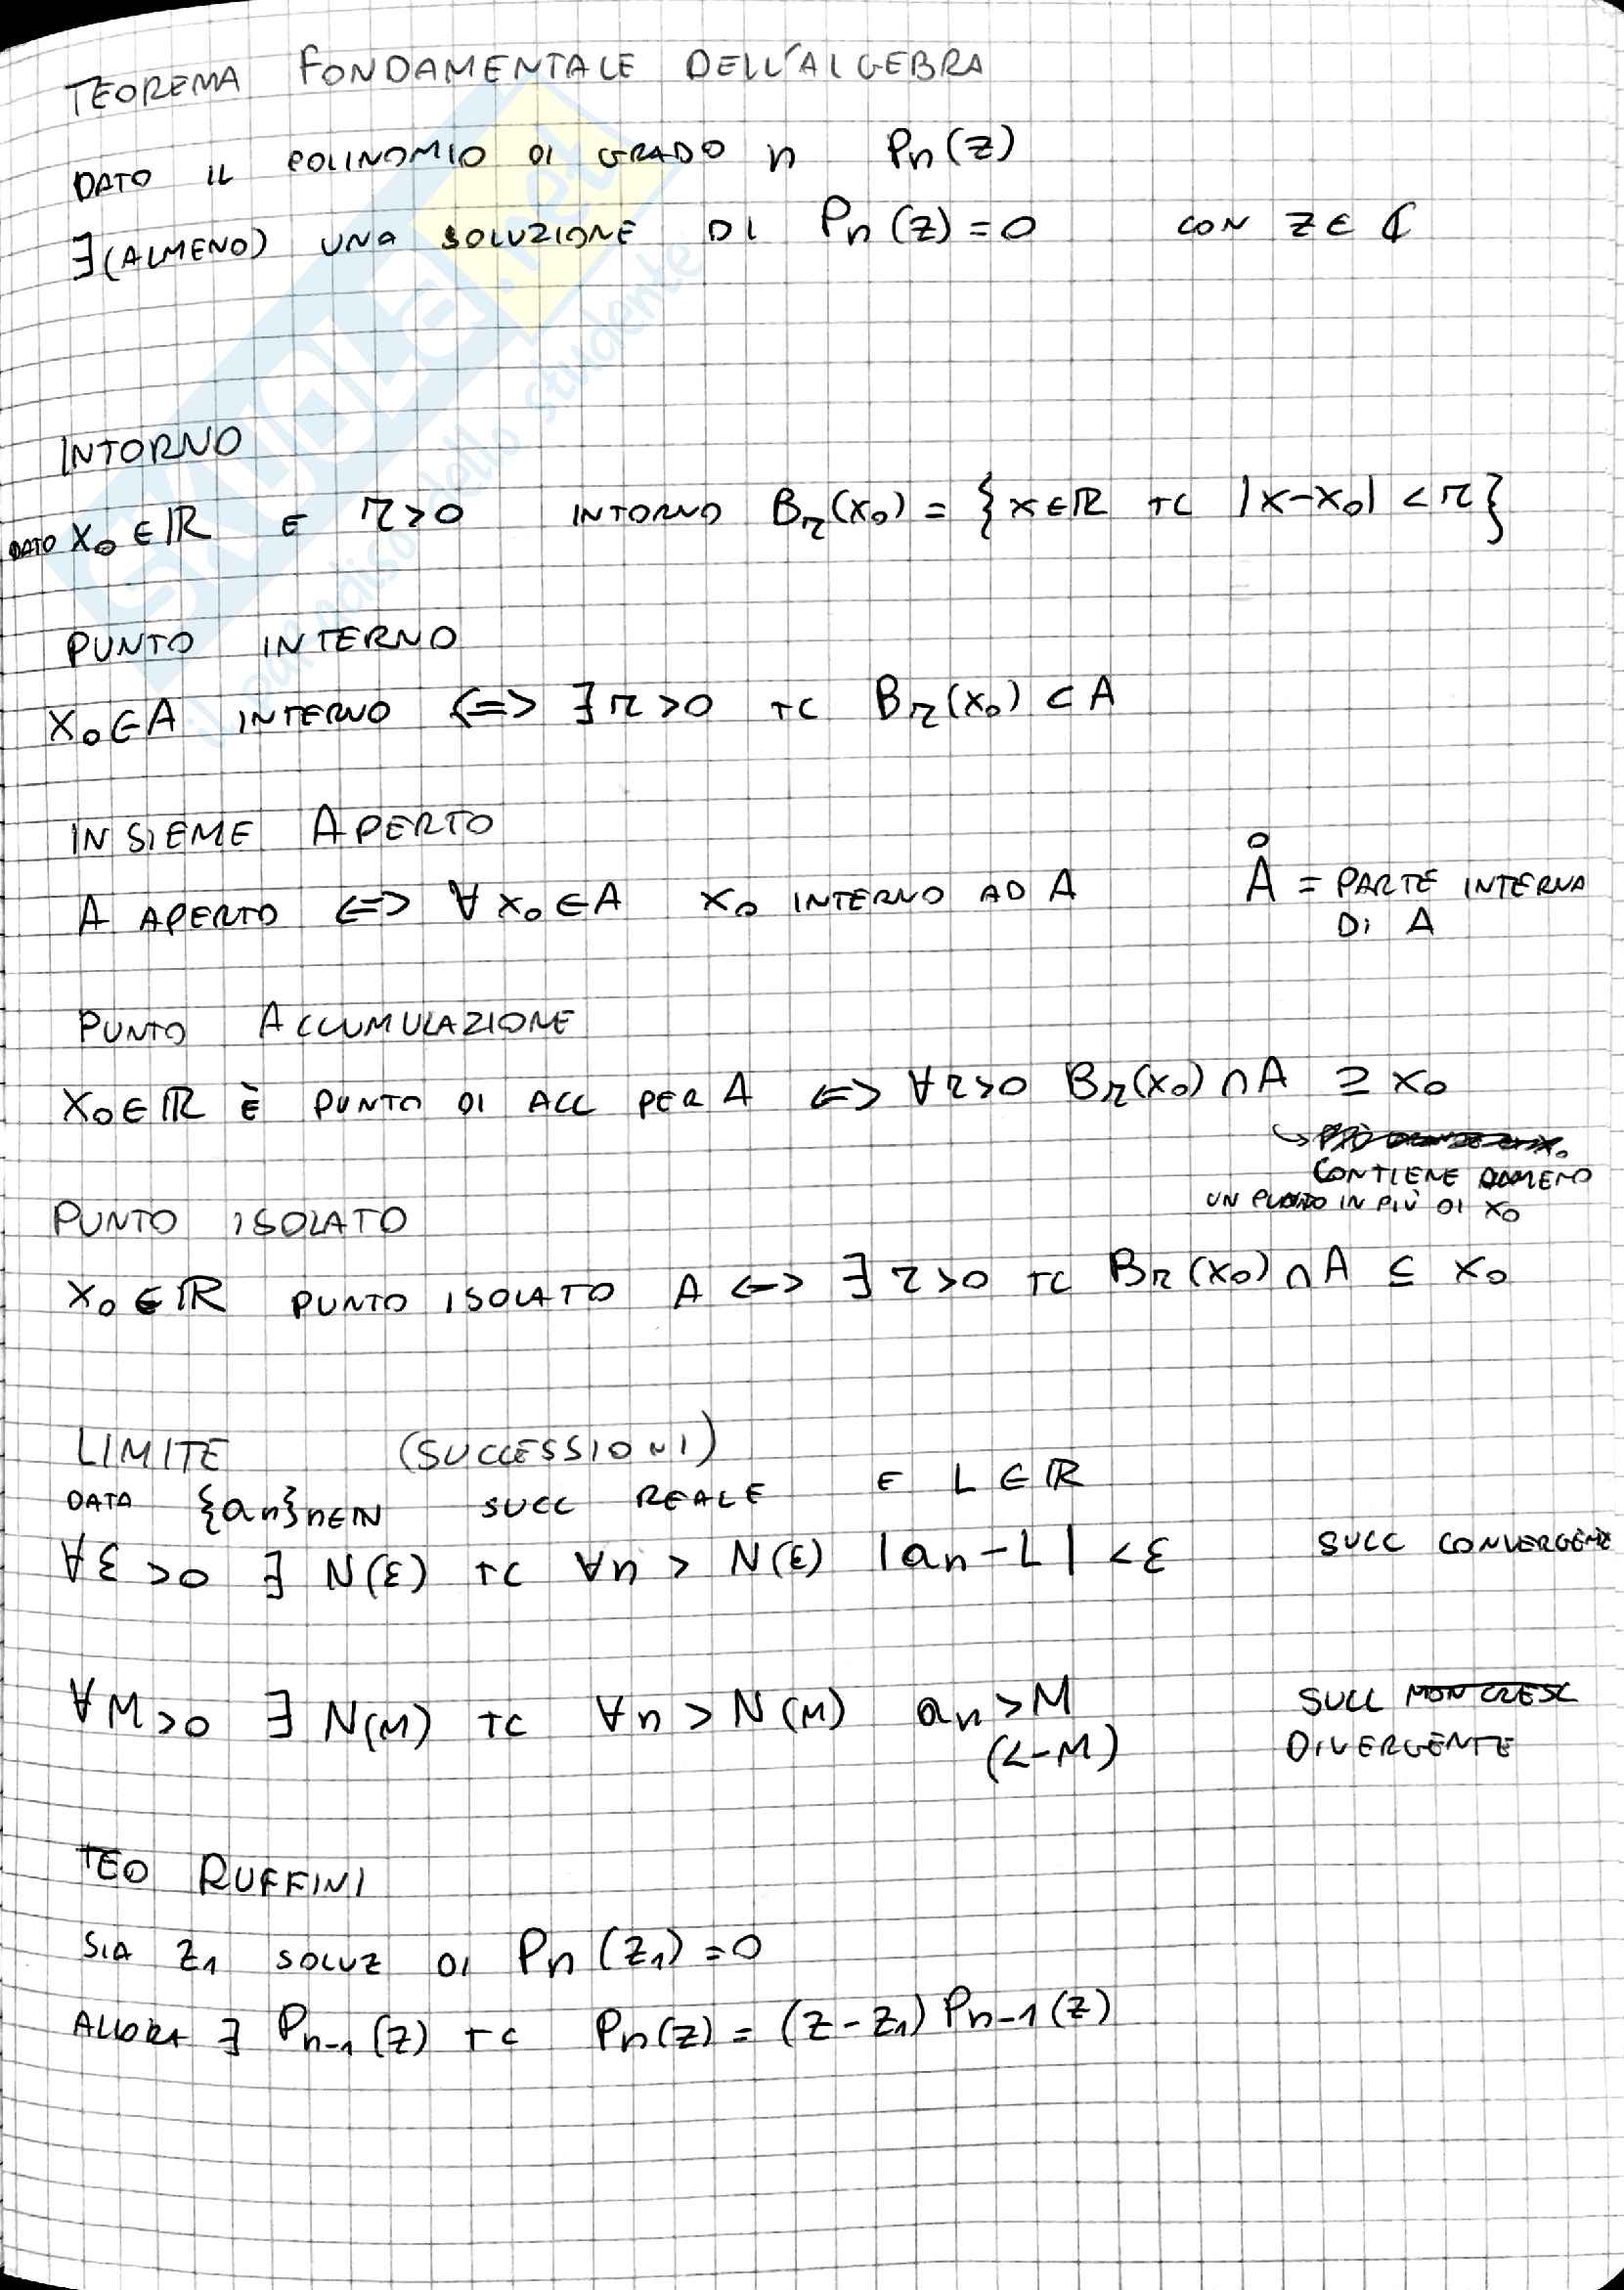 TEOREMA FONDAMENTALE DELL'ALGEBRA
DATO IL POLINOMIO DI GRADO n Pn(z)
∃(ALMENO) UNA SOLUZIONE DI Pn(z)=0 CON z∈ℂ
INTORNO
DATO x₀∈ℝ E r>0 INTORNO Br(x₀) = {x∈ℝ TC |x-x₀| < r}
PUNTO INTERNO
x₀∈A INTERNO <=> ∃ r>0 TC Br(x₀) ⊂ A
INSIEME APERTO
A APERTO <=> ∀x₀∈A x₀ INTERNO AD A
Å = PARTE INTERNA
DI A
PUNTO ACCUMULAZIONE
x₀∈ℝ È PUNTO DI ACC PER A <=> ∀r>0 Br(x₀)∩A ⊇ x₀
CONTIENE ALMENO
UN PUNTO IN PIÙ DI x₀
PUNTO ISOLATO
x₀∈ℝ PUNTO ISOLATO A <-> ∃ r>0 TC Br(x₀)∩A ⊆ x₀
LIMITE (SUCCESSIONI)
DATA {an}n∈ℕ SUCC REALE E L∈ℝ
∀ε>0 ∃ N(ε) TC ∀n > N(ε) |an-L| <ε SUCC CONVERGENTE
∀M>0 ∃ N(M) TC ∀n > N(M) an>M SUCC NON CRESC
(<-M) DIVERGENTE
TEO RUFFINI
SIA z₁ SOLUZ DI Pn(z₁)=0
ALLORA ∃ Pn-1(z) TC Pn(z) = (z-z₁)Pn-1(z)
SKUOLA.net
il paradiso dello studente